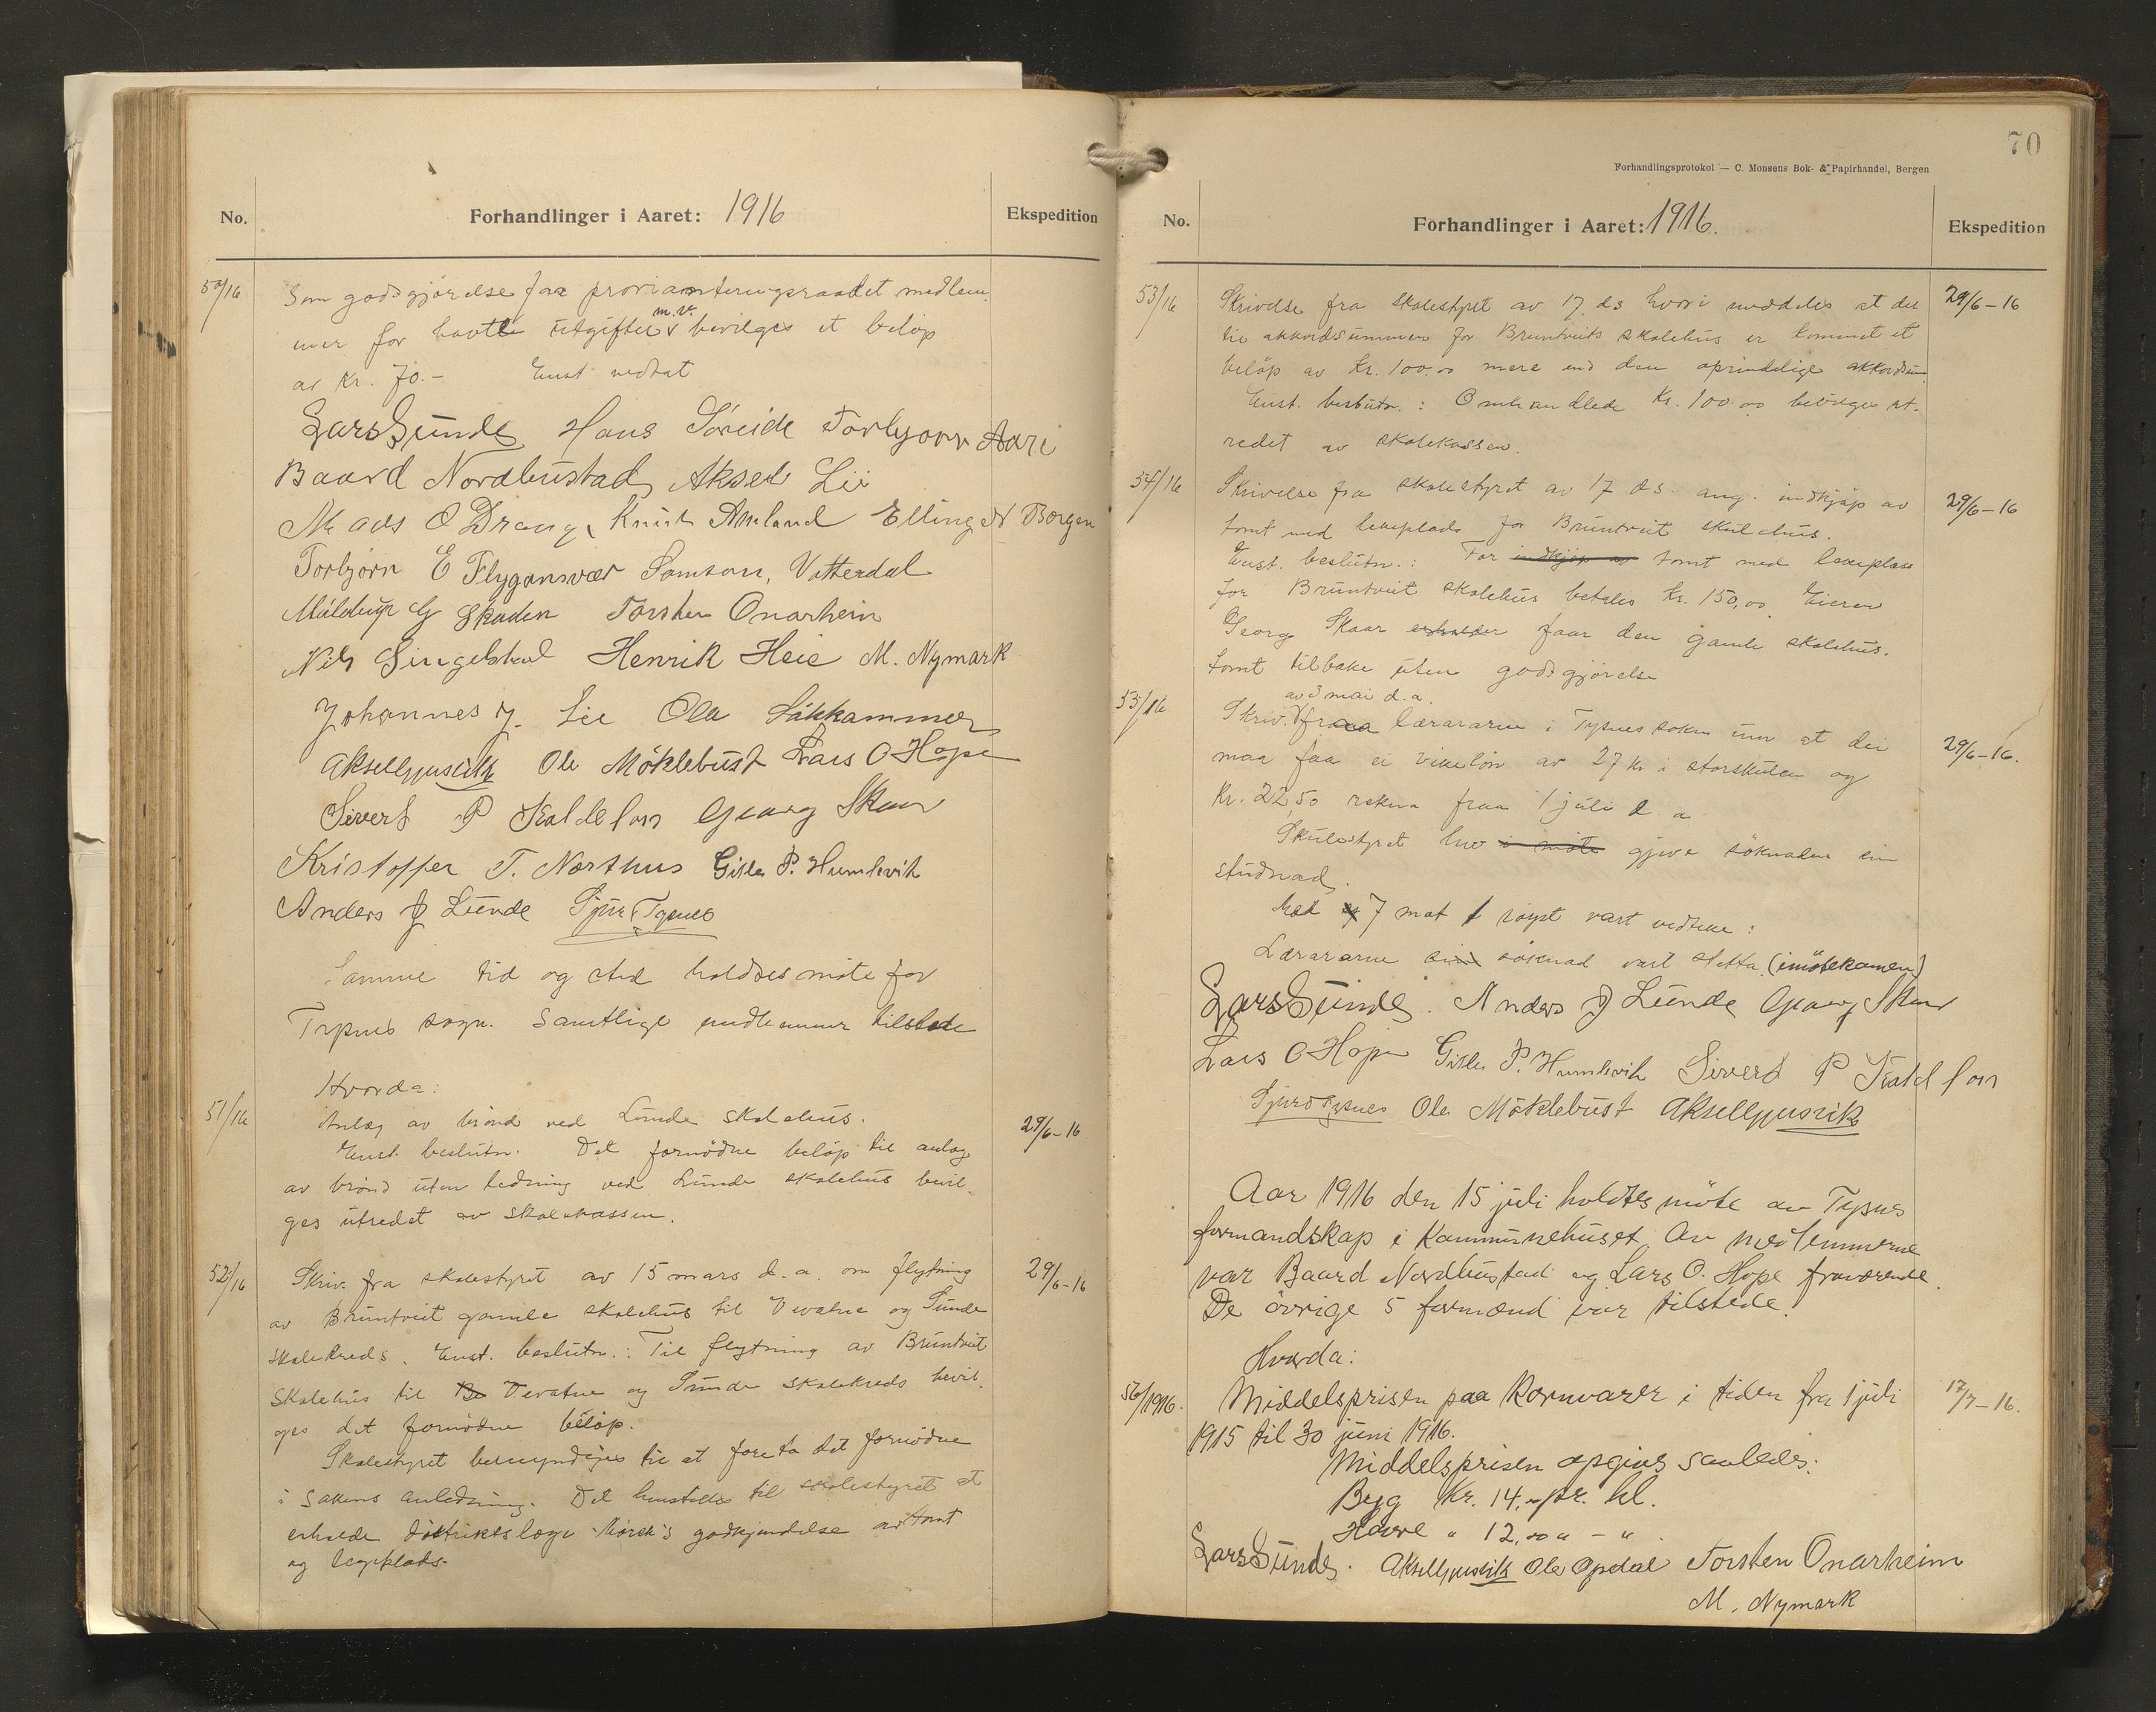 No.
Forhandlinger i Aaret: 1916
Ekspedition
50/16
Som godtgjørelse fra provianteringsraadet medlem
mer for havte utgifter m.v. bevilges et beløp
av Kr. 70.- Enst. vedtat
Lars Sunde Hans Søreide Torbjørn Aare
Baard Nordhustad Aksel Lie
Mads O Drange Knut Amland Elling N Borgen
Torbjørn E Flygansvær Samson Vatterdal
G Skaden Torsten Onarheim
Nils Singelstad Henrik Heie M. Nymark
Johannes J. Lie Ola Likkammer
Aksel Gjuvsvik Ole Möklebust Lars O Hope
Sivert P Kaldefoss Georg Skaar
Kristoffer T. Northus Gisle P. Humlevik
Anders J Lunde Sjur Tysnes
Samme tid og sted holdtes møte for
Tysnes sogn. Samtlige medlemmer tilstede
Hvorda:
51/16
Anlæg av brønd ved Lunde skolehus.
29/6-16
Enst. beslutn. Det fornødne beløp til anlæg
av brønd uten ledning ved Lunde skolehus bevil
ges utredet av skolekassen.
52/16
Skriv. fra skolestyret av 15 mars d. a. om flytning
29/6-16
av Bruntveit gamle skolehus til Tevatne og Sunde
skolekreds. Enst. beslutn.: Til flytning av Bruntveit
skolehus til Be Tevatne og Sunde skolekreds bevil.
ges det fornødne beløp.
Skolestyret bemyndiges til at foreta det fornødne
i sakens anledning. Det henstilles til skolestyret at
erholde distriktslæge Mørck's godkjendelse av tomt
og legeplads.
70
Forhandlingsprotokol — C. Monsens Bok- & Papirhandel, Bergen
No.
Forhandlinger i Aaret: 1916.
Ekspedition
53/16
Skrivelse fra skolestyret av 17. ds hvori meddeles at der
29/6-16
til akkordsummen for Bruntveits skolehus er kommet et
beløp av Kr. 100.00 mere end den oprindelige akkordsum
Enst. beslutn.: Omhandlede Kr. 100.00 bevilges ut-
redet av skolekassen.
54/16
Skrivelse fra skolestyret av 17 ds. ang. indkjøp av
29/6-16
tomt med lekeplads for Bruntveit skulehus.
Enst. beslutn.: For indkjøp av tomt med lekeplass
for Bruntveit skolehus betales Kr. 150,00. Eieren
Georg Skaar erholder faar den gamle skolehus.
tomt tilbake uten godtgjørelse
55/16
av 3 mai d. a.
Skriv. fraa lærararne i Tysnes sokn um at dei
29/6-16.
maa faa ei vikeløn av 27 kr i storskulen og
Kr. 22,50 rekna fraa 1 juli d. a
Skulestyret hev i møte gjeve søknaden sin
studnad.
Med 7 mot 1 røyst vart vedteke:
Lærararne sin søknad vart stetta. (imøtekomen)
Lars Sunde. Anders J Lunde Georg Skaar
Lars O Hope Gisle P. Humlevik Sivert P Kaldefoss
Sjur Tysnes Ole Möklebust Aksel Gjuvsvik
Aar 1916 den 15 juli holdtes møte av Tysnes
formandskap i Kommunehuset. Av medlemmerne
var Baard Nordhustad og Lars O. Hope fraværende.
De øvrige 5 formænd var tilstede.
Hvorda:
56/1916.
Middelsprisen paa Kornvarer i tiden fra 1 juli
17/7-16.
1915 til 30 juni 1916.
Middelsprisen opgives saaledes:
Byg Kr. 14.00 pr. hl.
Havre " 12,00 " - "
Lars Sunde. Aksel Gjuvsvik Ole Opdal Torsten Onarheim
M. Nymark